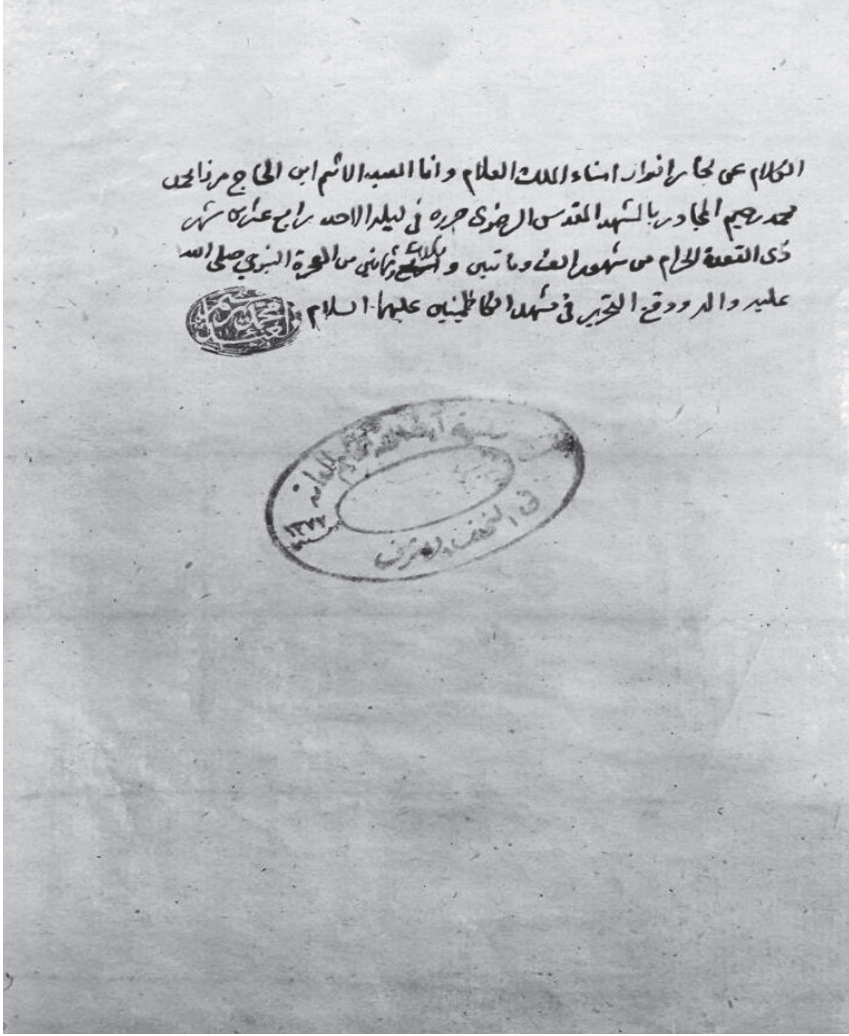 الكلام عن بحار انوار امناء الملك العلام و انا العبد الاثم ابن الحاج مرزا محمد
محمد رحيم المجاور بالمشهد المقدس الرضوى حرره في ليلة الاحد رابع عشر من شهر
ذى القعدة الحرام من شهور الف و ماتين و ثمانين من الهجرة النبوي صلى الله
عليه و اله و وقع التحرير في مشهد الكاظمين عليهما السلام
محمد رحيم
مكتبة آية الله الحكيم العامة
في النجف الاشرف
١٣٧٧